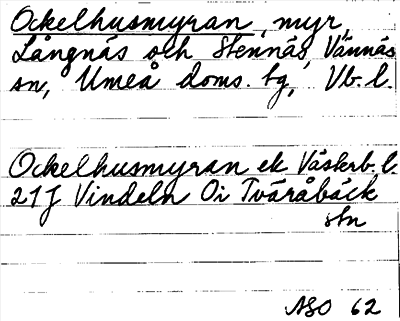 Ockelhusmyran, myr,
Långnäs och Stennäs, Vännäs
sn, Umeå doms. tg, Vb. l.
Ockelhusmyran ek Västerb. l.
21J Vindeln Öi Tväråbäck
stn
ASO 62